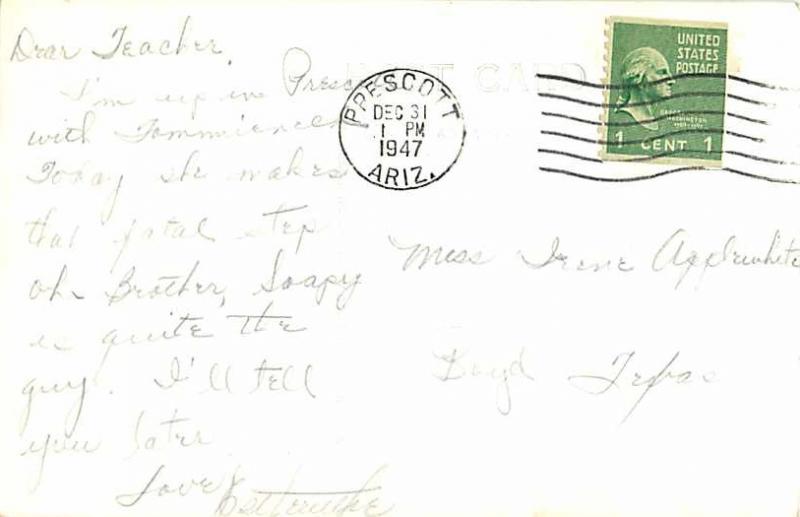 Dear Teacher,
I'm up in Presco
with Tommie
Today she makes
that fatal step
oh Brother, Soapy
is quite the
guy. I'll tell
you later
Love
POST CARD
PRESCOTT
DEC 31
1 PM
1947
ARIZ.
UNITED
STATES
POSTAGE
WASHINGTON
1 CENT 1
Miss Irene Applewhite
Boyd Texas